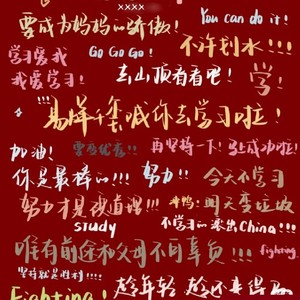 ××××
要成为妈妈的骄傲!
You can do it!
不许划水!!!
学习爱我
我爱学习!
Go Go Go!
去山顶看看吧!
学!
!!!
易烊千玺喊你去学习啦!
加油!
要变优秀!!
再坚持一下! 马上成功啦!
你是最棒的!!!
努力!!
今天不学习
努力才是硬道理!!!
冲鸭!
明天变垃圾
study
不学习的滚出China!!!
唯有前途和父母不可辜负!!!
fighting.
坚持就是胜利!!!!
Fighting!
趁年轻 趁还来得及